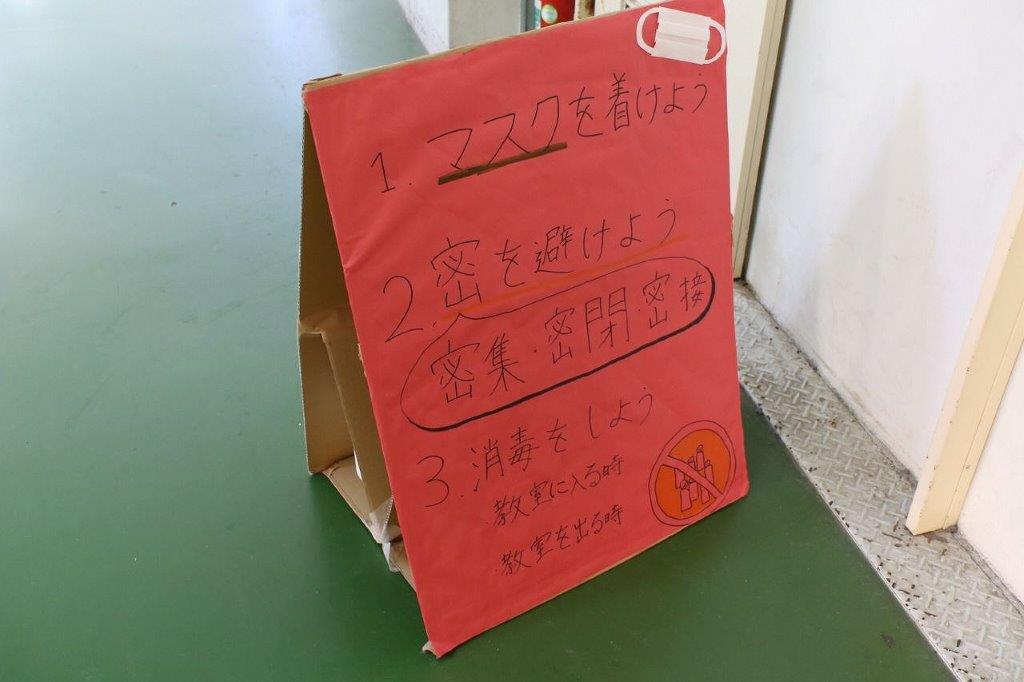 1. マスクを着けよう
2. 密を避けよう
密集・密閉・密接
3. 消毒をしよう
・教室に入る時
・教室を出る時